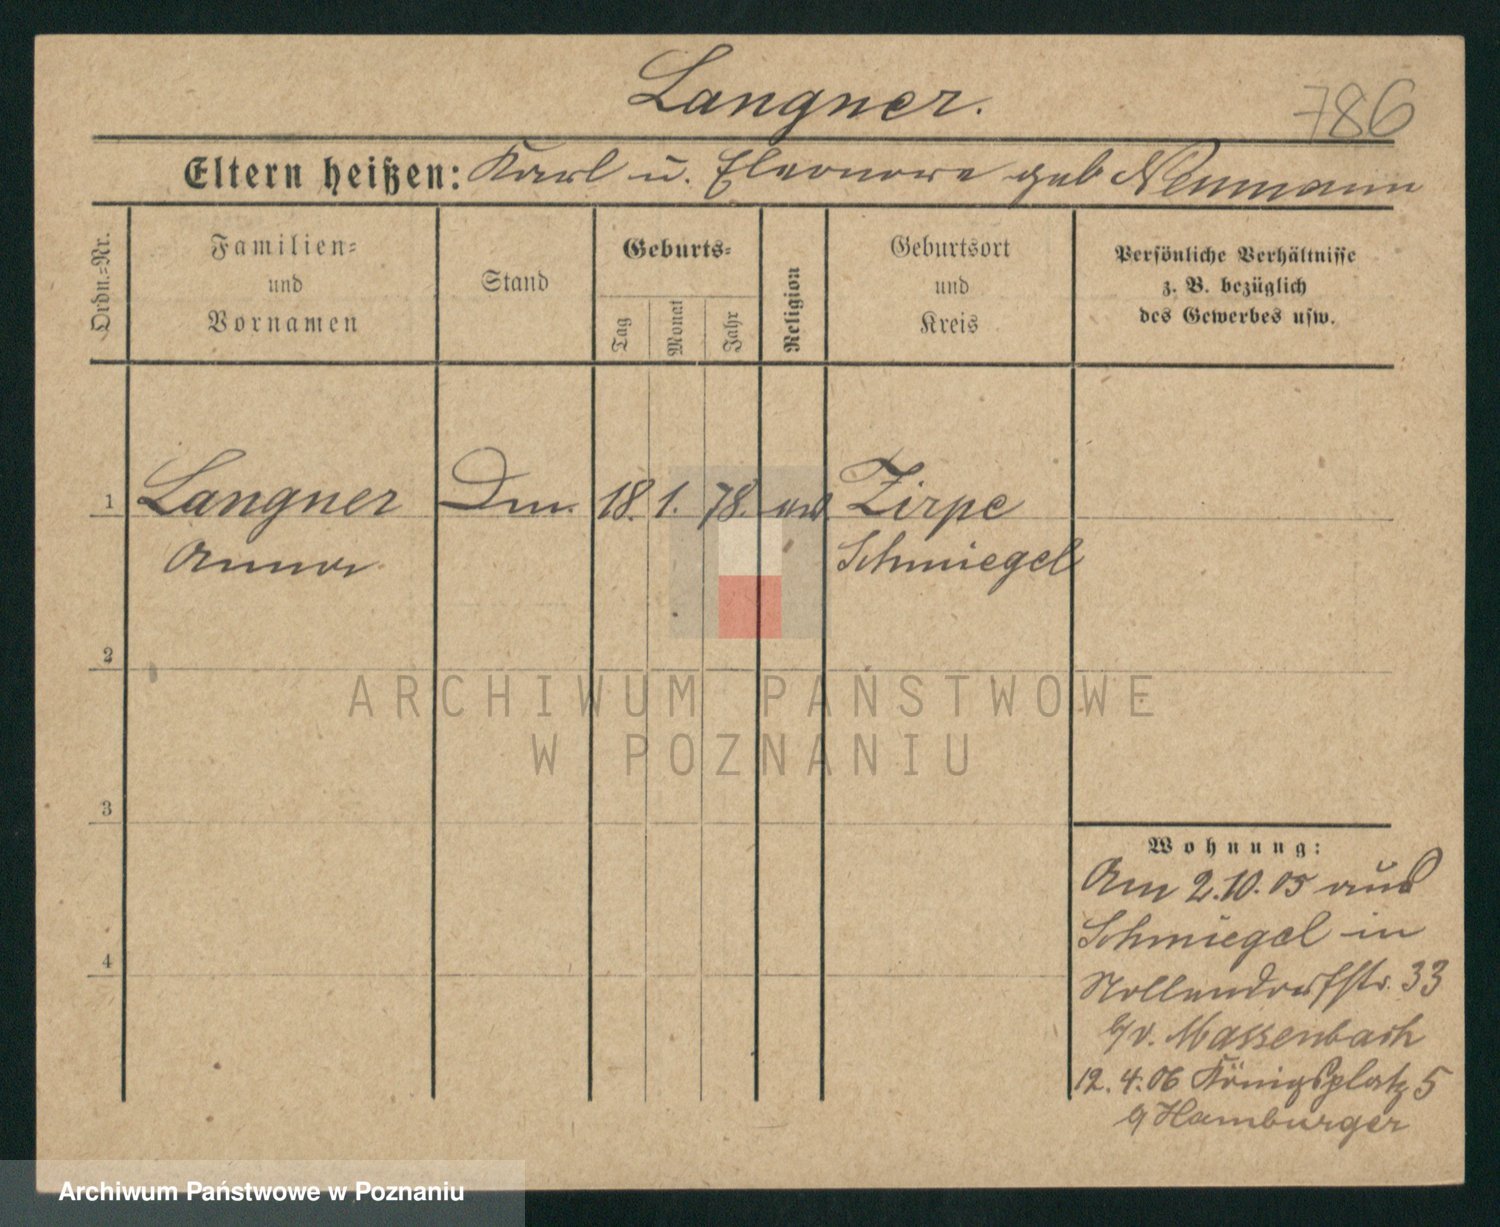 Langner.
786
Eltern heißen: Karl u. Eleonore geb Neumann
Ordn.=Nr.
Familien=
und
Vornamen
Stand
Geburts=
Tag
Monat
Jahr
Religion
Geburtsort
und
Kreis
Persönliche Verhältnisse
z. B. bezüglich
des Gewerbes usw.
1
Langner
18. 1. 78.
Zirpe
Anna
Schmiegel
2
ARCHIWUM PAŃSTWOWE
W POZNANIU
3
4
Wohnung:
Am 2.10.05 aus
Schmiegel in
Nollendorfstr. 33
b/v. Massenbach
12. 4. 06 Königsplatz 5
Hamburger
Archiwum Państwowe w Poznaniu